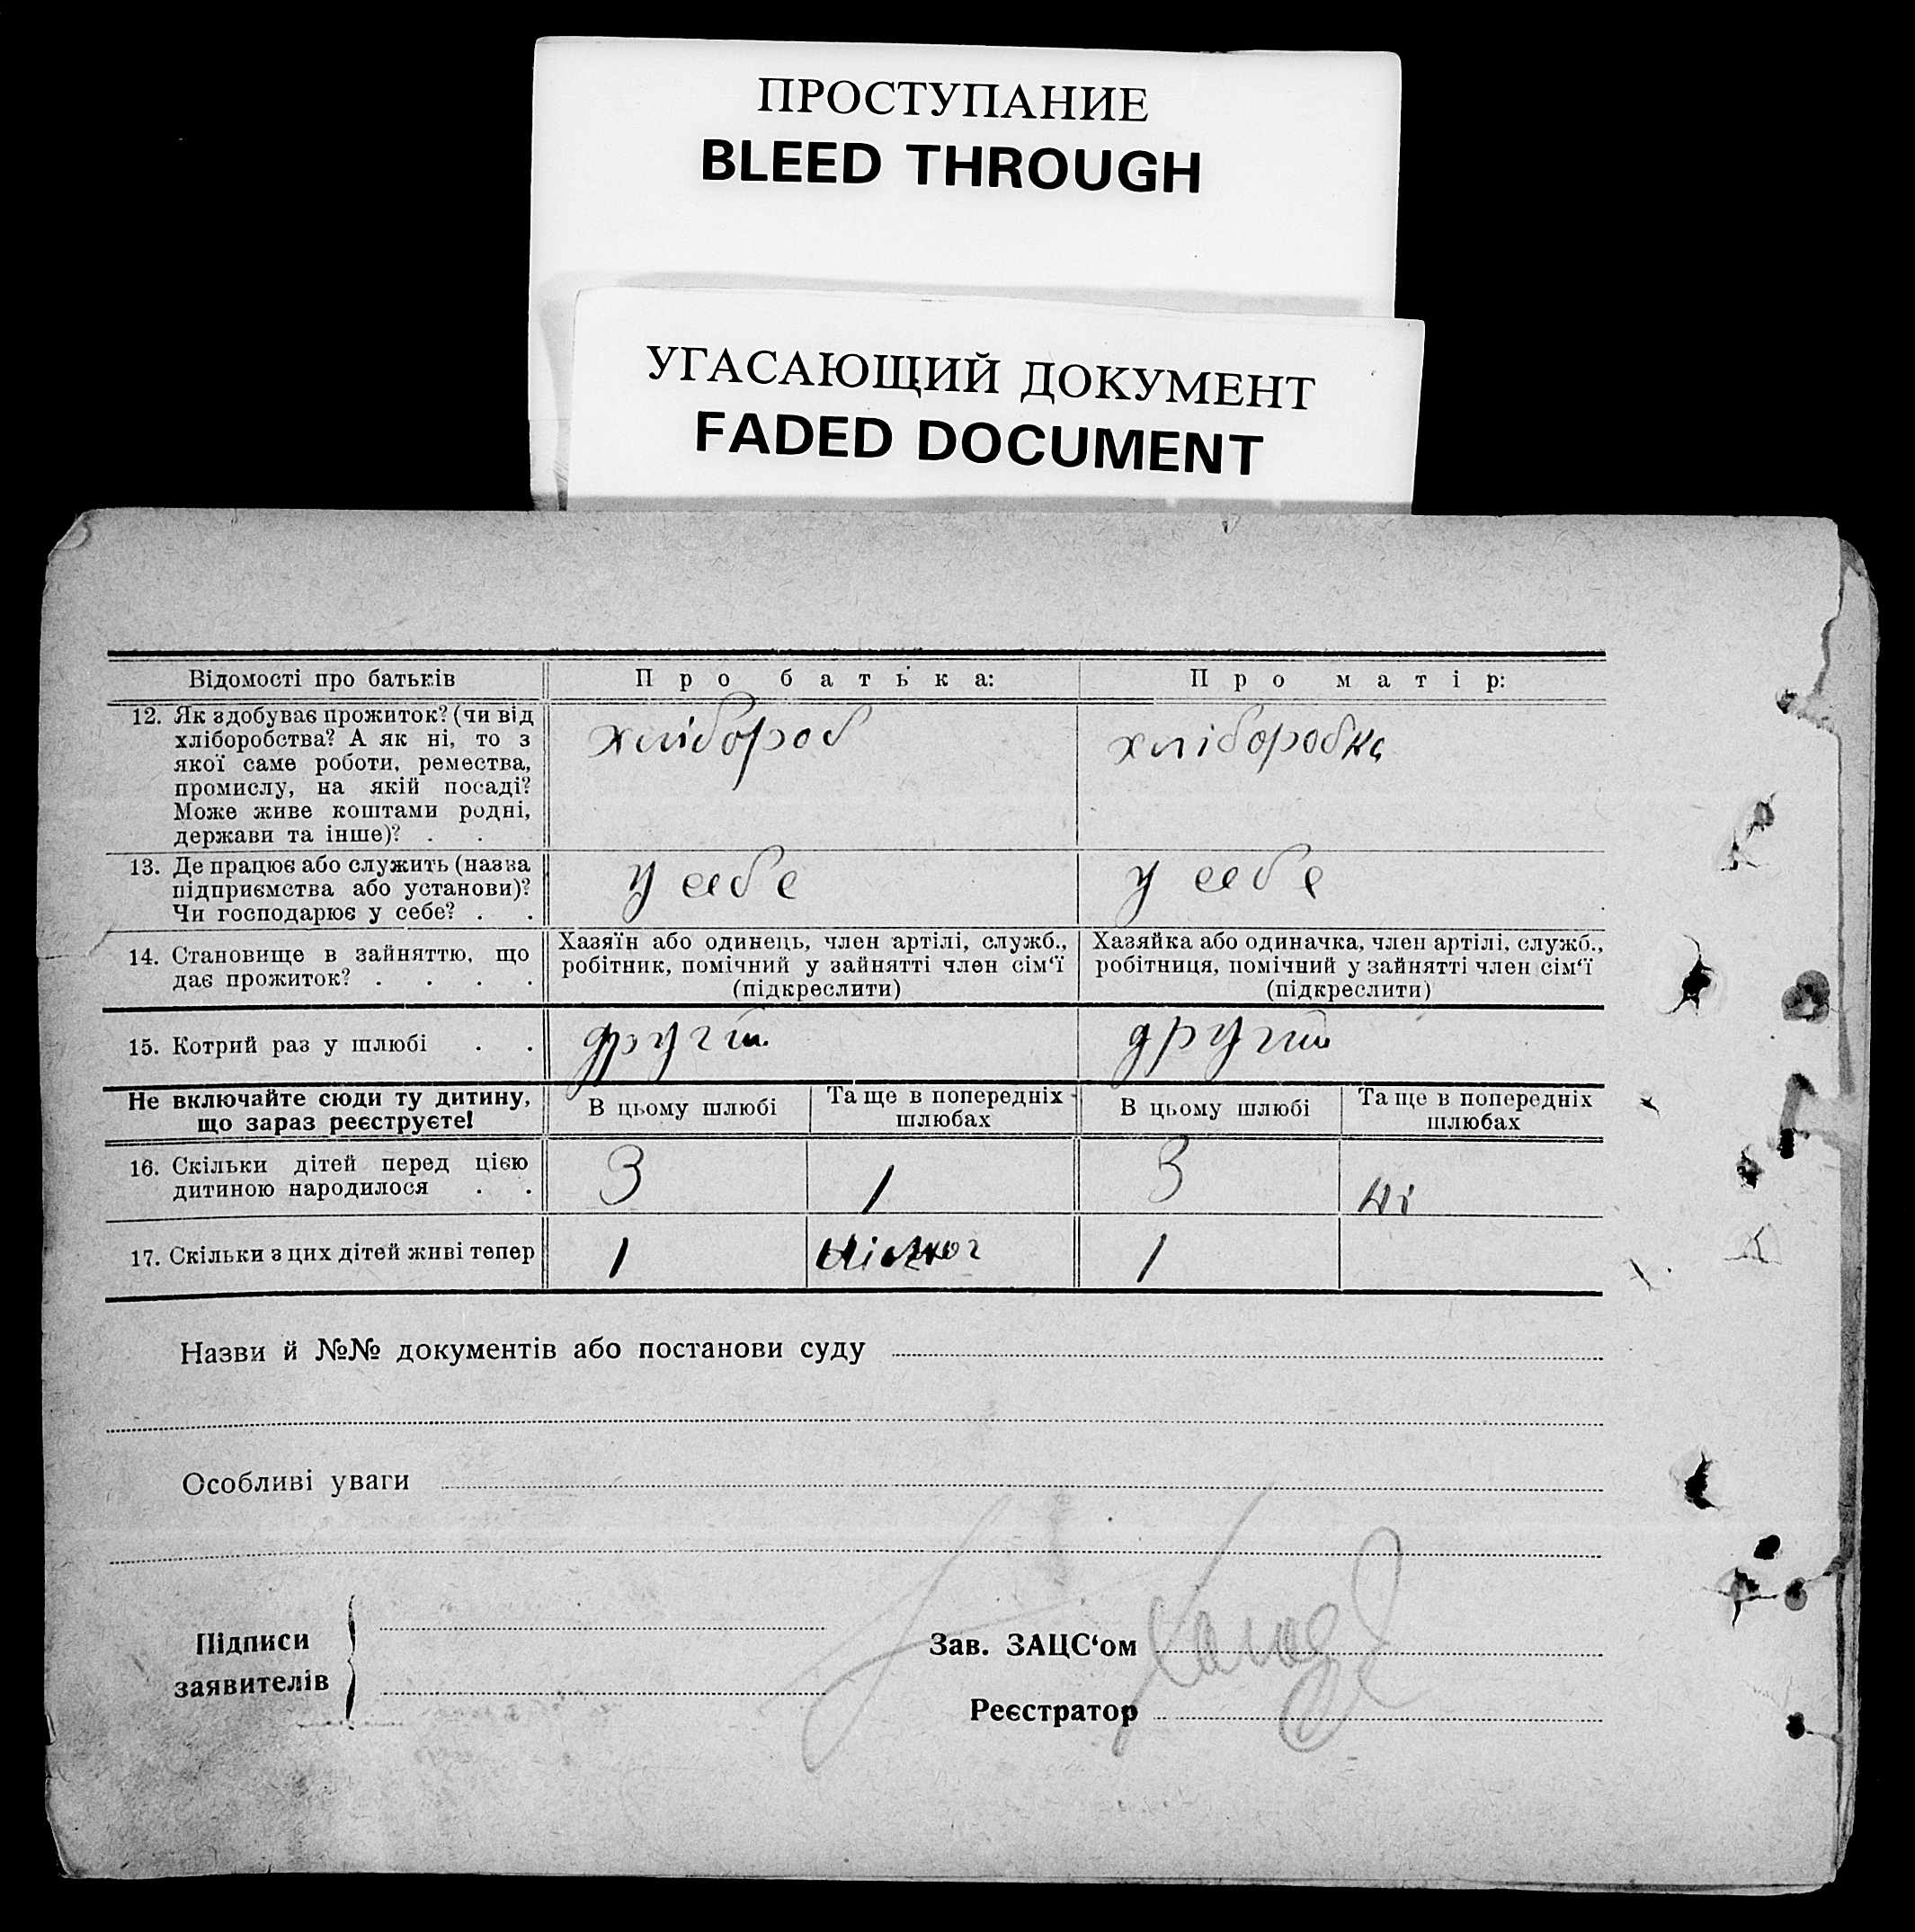 ПРОСТУПАНИЕ
BLEED THROUGH
УГАСАЮЩИЙ ДОКУМЕНТ
FADED DOCUMENT
Відомості про батьків
Про батька:
Про матір:
12. Як здобуває прожиток? (чи від
хліборобства? А як ні, то з
якої саме роботи, ремества,
промислу, на якій посаді?
Може живе коштами родні,
держави та інше)? . .
хлібороб
хліборобка
13. Де працює або служить (назва
підприємства або установи)?
Чи господарює у себе? . .
у себе
у себе
14. Становище в зайняттю, що
дає прожиток? . . . .
Хазяїн або одинець, член артілі, служб.,
робітник, помічний у зайнятті член сім‘ї
(підкреслити)
Хазяйка або одиначка, член артілі, служб.,
робітниця, помічний у зайнятті член сім‘ї
(підкреслити)
15. Котрий раз у шлюбі . .
другий
другий
Не включайте сюди ту дитину,
що зараз реєструєте!
В цьому шлюбі
Та ще в попередніх
шлюбах
В цьому шлюбі
Та ще в попередніх
шлюбах
16. Скільки дітей перед цією
дитиною народилося . .
3
1
3
ні
17. Скільки з цих дітей живі тепер
1
1
Назви й №№ документів або постанови суду
Особливі уваги
Підписи
заявителів
Зав. ЗАЦС‘ом
Реєстратор